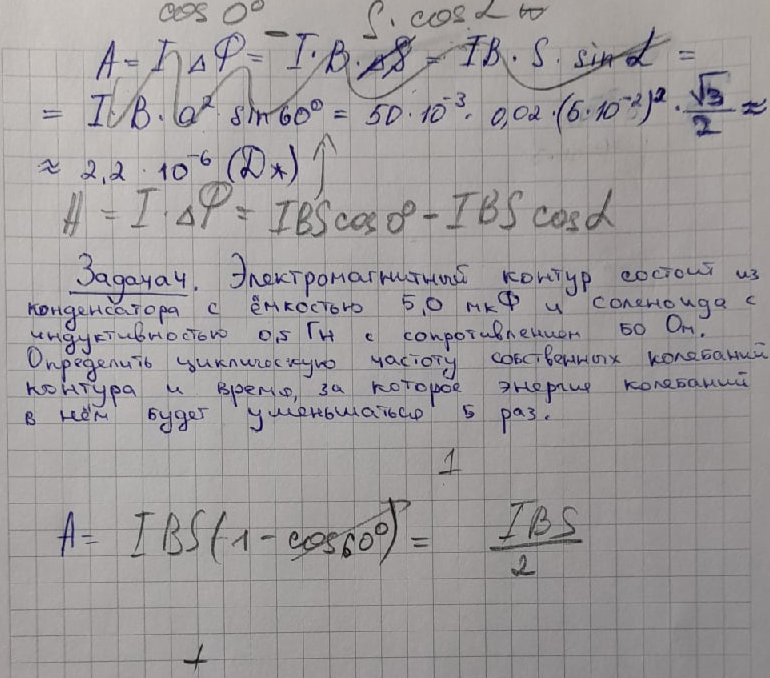 cos 0° S · cos α
A = I ΔΦ = - I · B · ΔS = IB · S · sin α =
= I B · a² sin 60° = 50 · 10⁻³ · 0,02 · (5 · 10⁻²)² · √3/2 ≈
≈ 2,2 · 10⁻⁶ (Дж)
A = I · ΔΦ = IBS cos 0° - IBS cos α
Задача 4. Электромагнитный контур состоит из
конденсатора с ёмкостью 5,0 мкФ и соленоида с
индуктивностью 0,5 Гн с сопротивлением 50 Ом.
Определить циклическую частоту собственных колебаний
контура и время, за которое энергия колебаний
в нём будет уменьшаться 5 раз.
1
A = IBS(1 - cos 60°) = IBS/2
+